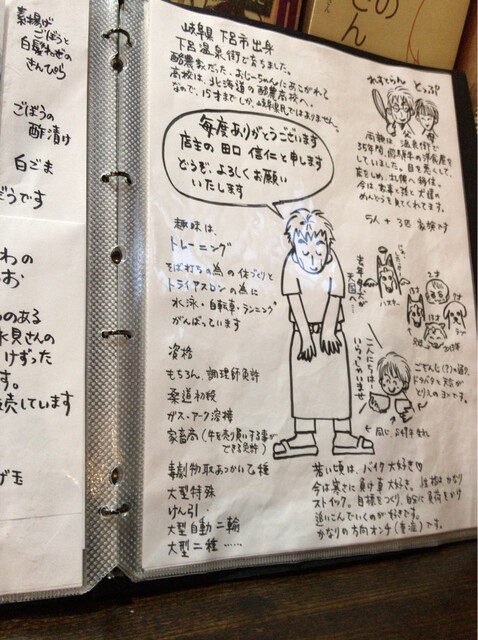 素揚げ
ごぼうと
白髪ねぎの
きんぴら
ごぼうの
酢漬け
白ごま
どうです
わの
お
のある
水貝さんの
けずった
す。
続しています
げ玉
のさん
岐阜県 下呂市出身
下呂温泉街で育ちました。
酪農家だった、おじーちゃんにあこがれて
高校は、北海道の酪農高校へ。
なので、15才までしか、岐阜県民ではありません。
毎度ありがとうございます
店主の 田口 信仁と申します
どうぞ、よろしくお願い
いたします
れすとらん とっぷ
両親は、温泉街で
35年間、飛騨牛の洋食屋を
していました。目を悪くして、
店をしめ、北側へ移住。
今は、お家で孫と犬猫の
めんどうを見てくれてます。
5人+3匹 家族です
趣味は、
トレーニング
そば打ちの為の体づくりと
トライアスロンの為に
水泳・自転車・ランニング
がんばっています
老年犬が
天国へ…
ハスキー
資格
もちろん、調理師免許
柔道初段
ガス・アーク溶接
家畜商(牛を売り買いする事が
できる免許)
毒劇物取あつかい乙種
大型特殊
けん引
大型自動二輪
大型二種……
こんにちは!
いらっしゃいませ
ごぞんじ(?)の通り
ドリバタと天立が
とりえのヨメです。
同じ、お好み生れ
若い頃は、バイク大好き♡
今は寒さに負け車大好き。性格はかなり
ストイック。目標をつくり、自分に負荷をかけ
追いこんでいくのが好きです。
かなりの方向オンチ(重症)です。